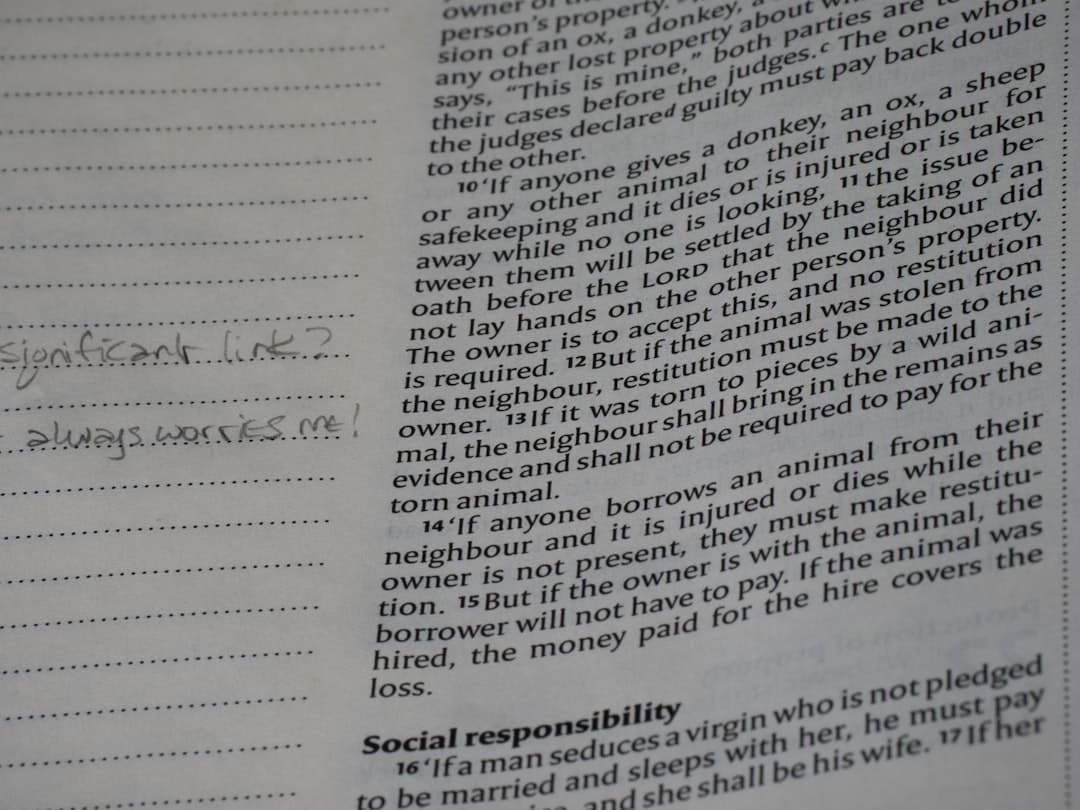 significant link?
always worries me!
owner of
person's property.
sion of an ox, a donkey, a
any other lost property about
says, "This is mine," both parties are
their cases before the judges.c The one whom
the judges declared guilty must pay back double
to the other.
10 'If anyone gives a donkey, an ox, a sheep
or any other animal to their neighbour for
safekeeping and it dies or is injured or is taken
away while no one is looking, 11 the issue be-
tween them will be settled by the taking of an
oath before the LORD that the neighbour did
not lay hands on the other person's property.
The owner is to accept this, and no restitution
is required. 12 But if the animal was stolen from
the neighbour, restitution must be made to the
owner. 13 If it was torn to pieces by a wild ani-
mal, the neighbour shall bring in the remains as
evidence and shall not be required to pay for the
torn animal.
14 'If anyone borrows an animal from their
neighbour and it is injured or dies while the
owner is not present, they must make restitu-
tion. 15 But if the owner is with the animal, the
borrower will not have to pay. If the animal was
hired, the money paid for the hire covers the
loss.
Social responsibility
16 'If a man seduces a virgin who is not pledged
to be married and sleeps with her, he must pay
and she shall be his wife. 17 If her